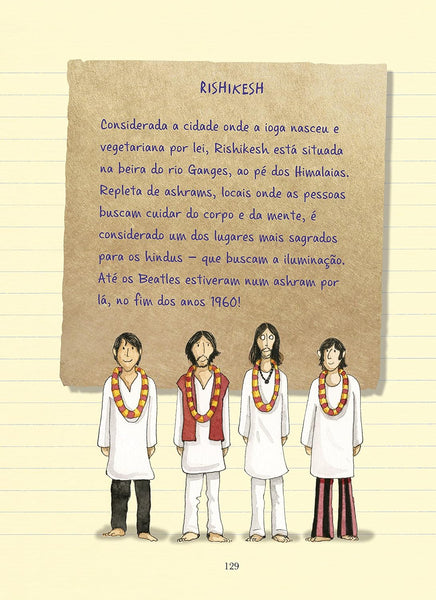 RISHIKESH
Considerada a cidade onde a ioga nasceu e
vegetariana por lei, Rishikesh está situada
na beira do rio Ganges, ao pé dos Himalaias.
Repleta de ashrams, locais onde as pessoas
buscam cuidar do corpo e da mente, é
considerado um dos lugares mais sagrados
para os hindus – que buscam a iluminação.
Até os Beatles estiveram num ashram por
lá, no fim dos anos 1960!
129